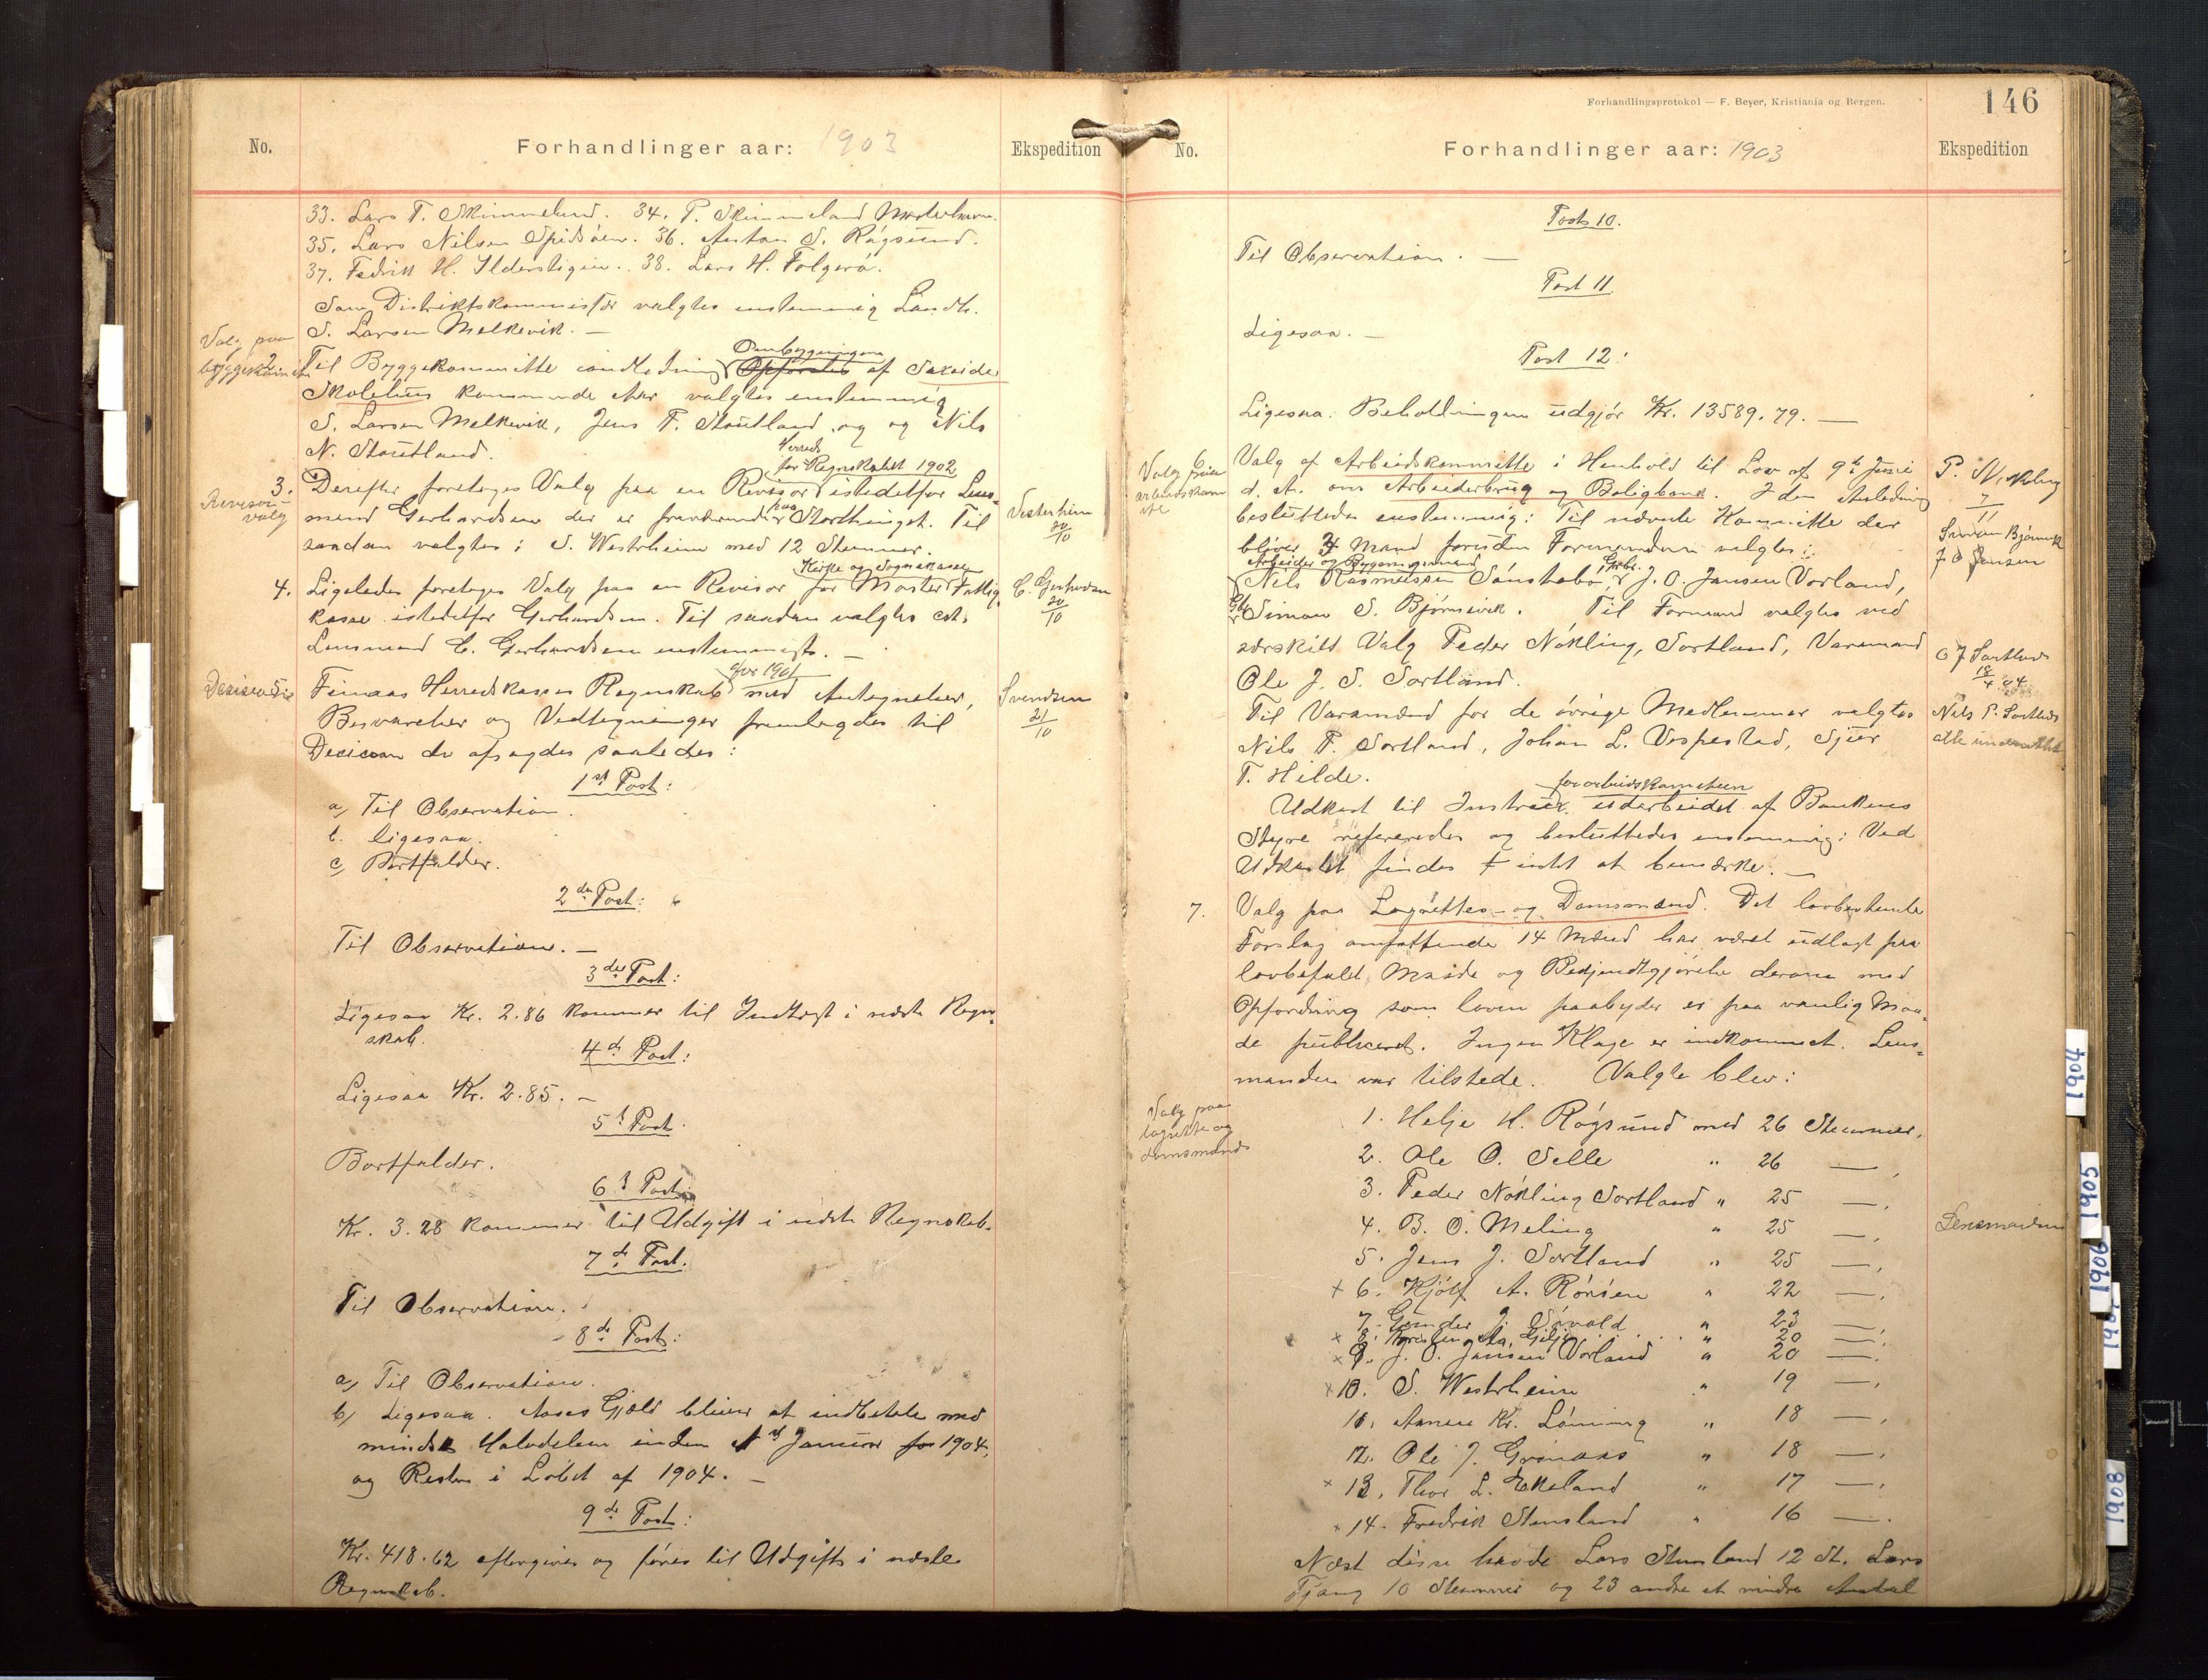 No.
Forhandlinger aar: 1903
Ekspedition
33. Lars T. Skimmeland. 34. P. Skimmeland Mosterhavn.
35. Lars Nilsen Spidsöen. 36. Anton S. Rögsund.
37. Fedrik H. Ilderstigen. 38. Lars H. Folgerö.
Som Distriktskommissær valgtes enstemmig Landh.
S. Larsen Melkevik. —
Valg paa
byggekomite
2.
Ombygningen
Til Byggekommitte i anledning Opförelse af Sakseide
Skolehus kommende Aar valgtes enstemmig
S. Larsen Melkevik, Jens T. Stautland og og Nils
N. Stautland.
Herreds
for Regnskabet 1902
3.
Revisor
valg
Derefter foretoges Valg paa en Revisor istedetfor Lens-
mand Gerhardsen der er fraværende paa Storthinget. Til
saadan valgtes: S. Westrheim med 12 Stemmer.
Vesterheim
20/10
Kirke og Sognekasse
4. Ligeledes foretoges Valg paa en Revisor for Moster Fattig-
kasse istedetfor Gerhardsen. Til saadan valgtes cst.
Lensmand C. Gerhardsen enstemmigt. —
C. Gerhardsen
20/10
for 1901
Decision
5.
Finaas Herredskasses Regnskab med Antegnelser,
Besvarelser og Vedtegninger fremlagdes til
Decision der afsagdes saaledes:
Svendsen
21/10
1st Post:
a, Til Observation.
b. ligesaa.
c, Bortfalder.
2den Post:
Til Observation. —
3die Post:
Ligesaa Kr. 2.86 kommer til Indtægt i næste Regn-
skab.
4de Post:
Ligesaa Kr. 2.85. —
5t Post.
Bortfalder.
6t Post:
Kr. 3.28 kommer til Udgift i næste Regnskab.
7de Post.
Til Observation.
8de Post:
a, Til Observation.
b, Ligesaa. Aases Gjæld bliver at indbetale med
mindst Halvdelen inden 1st Januar for 1904,
og Resten i Löbet af 1904. —
9de Post:
Kr. 418.62 eftergives og föres til Udgift i næste
Regnskab.
Forhandlingsprotokol — F. Beyer, Kristiania og Bergen.
146
No.
Forhandlinger aar: 1903
Ekspedition
Post 10.
Til Observation. —
Post 11
Ligesaa. —
Post 12:
Ligesaa. Beholdningen udgjör Kr. 13589.79. —
6
Valg paa
arbeidskom
ite
Valg af Arbeidskommitte i Henhold til Lov af 9de Juni
d. A. om Arbeiderbrug og Boligbank. I den Anledning
besluttedes enstemmig: Til nævnte Kommitte der
bliver 3 Mand foruden Formanden valgtes:
Arbeider og Bygningsmand
Nils Rasmussen Sönstabö, Grbr. J. O. Jansen Vorland,
Gbr Simon S. Björnevik. Til Formand valgtes ved
særskilt Valg Peder Nökling, Sortland, Varamand
Ole J. S. Sortland.
Til Varamænd for de övrige Medlemmer valgtes
Nils P. Sortland, Johan L. Vespestad, Sjur
T. Hilde.
P. Nökling
7/11
Simon Björnevik
J O Jensen
O J Sortland
18/4 04
Nils P. Sortland
alle underrettet
for arbeidskomiteen
Udkast til Instrux udarbeidet af Bankens
Styre refereredes og besluttedes enstemmig: Ved
Udkastet findes intet at bemærke. —
7. Valg paa Lagrettes- og Domsmænd. Det lovbestemte
Forslag omfattende 14 Mænd har været udlagt paa
lovbefalet Maade og Bekjendtgjörelse derom med
Opfordring som loven paabyder er paa vanlig Maa-
de publiceret. Ingen Klage er indkommet. Lens-
manden var tilstede. Valgte blev:
Valg paa
lagrette og
domsmænd
1. Helje H. Rögsund med 26 Stemmer,
2. Ole O. Selle " 26 —,
3. Peder Nökling Sortland " 25 —,
4. B. O. Meling " 25 —,
5. Jens J. Sortland " 25 —,
+ 6. Kjölf A. Rönsen " 22 —,
7. Gunder J. Vorvold " 23 —,
× 8. Torstein A. Gilje . . . " 20 —,
× 9. J. O. Jansen Vorland " 20 —,
× 10. S. Westrheim " 19 —,
11. Aamen Kr. Löning " 18 —,
12. Ole J. Grönaas " 18 —,
× 13. Thor L. Ekeland " 17 —,
× 14. Fredrik Stensland " 16 —.
Lensmanden
Næst disse havde Lars Stensland 12 St. Lars
Tjong 10 Stemmer og 23 andre et mindre Antal
1904
1905
1906
1908